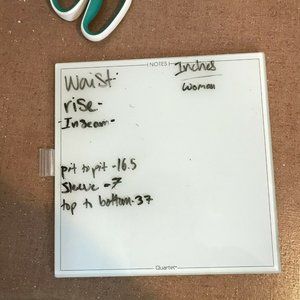 NOTES
Inches
Waist-
Woman
rise-
-Inseam-
pit to pit -16.5
Sleeve -7
top to bottom-37
Quartet